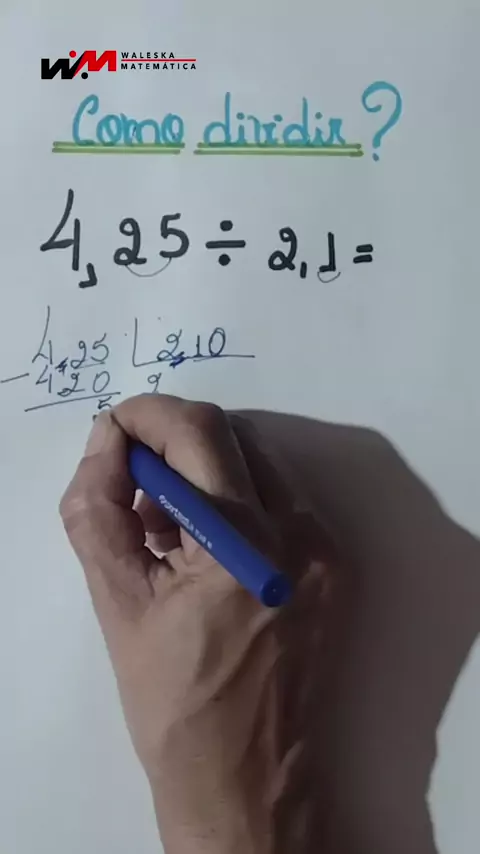 WM WALESKA
MATEMÁTICA
Como dividir?
4,25 ÷ 2,1 =
4,25 2,10
- 420 2
5